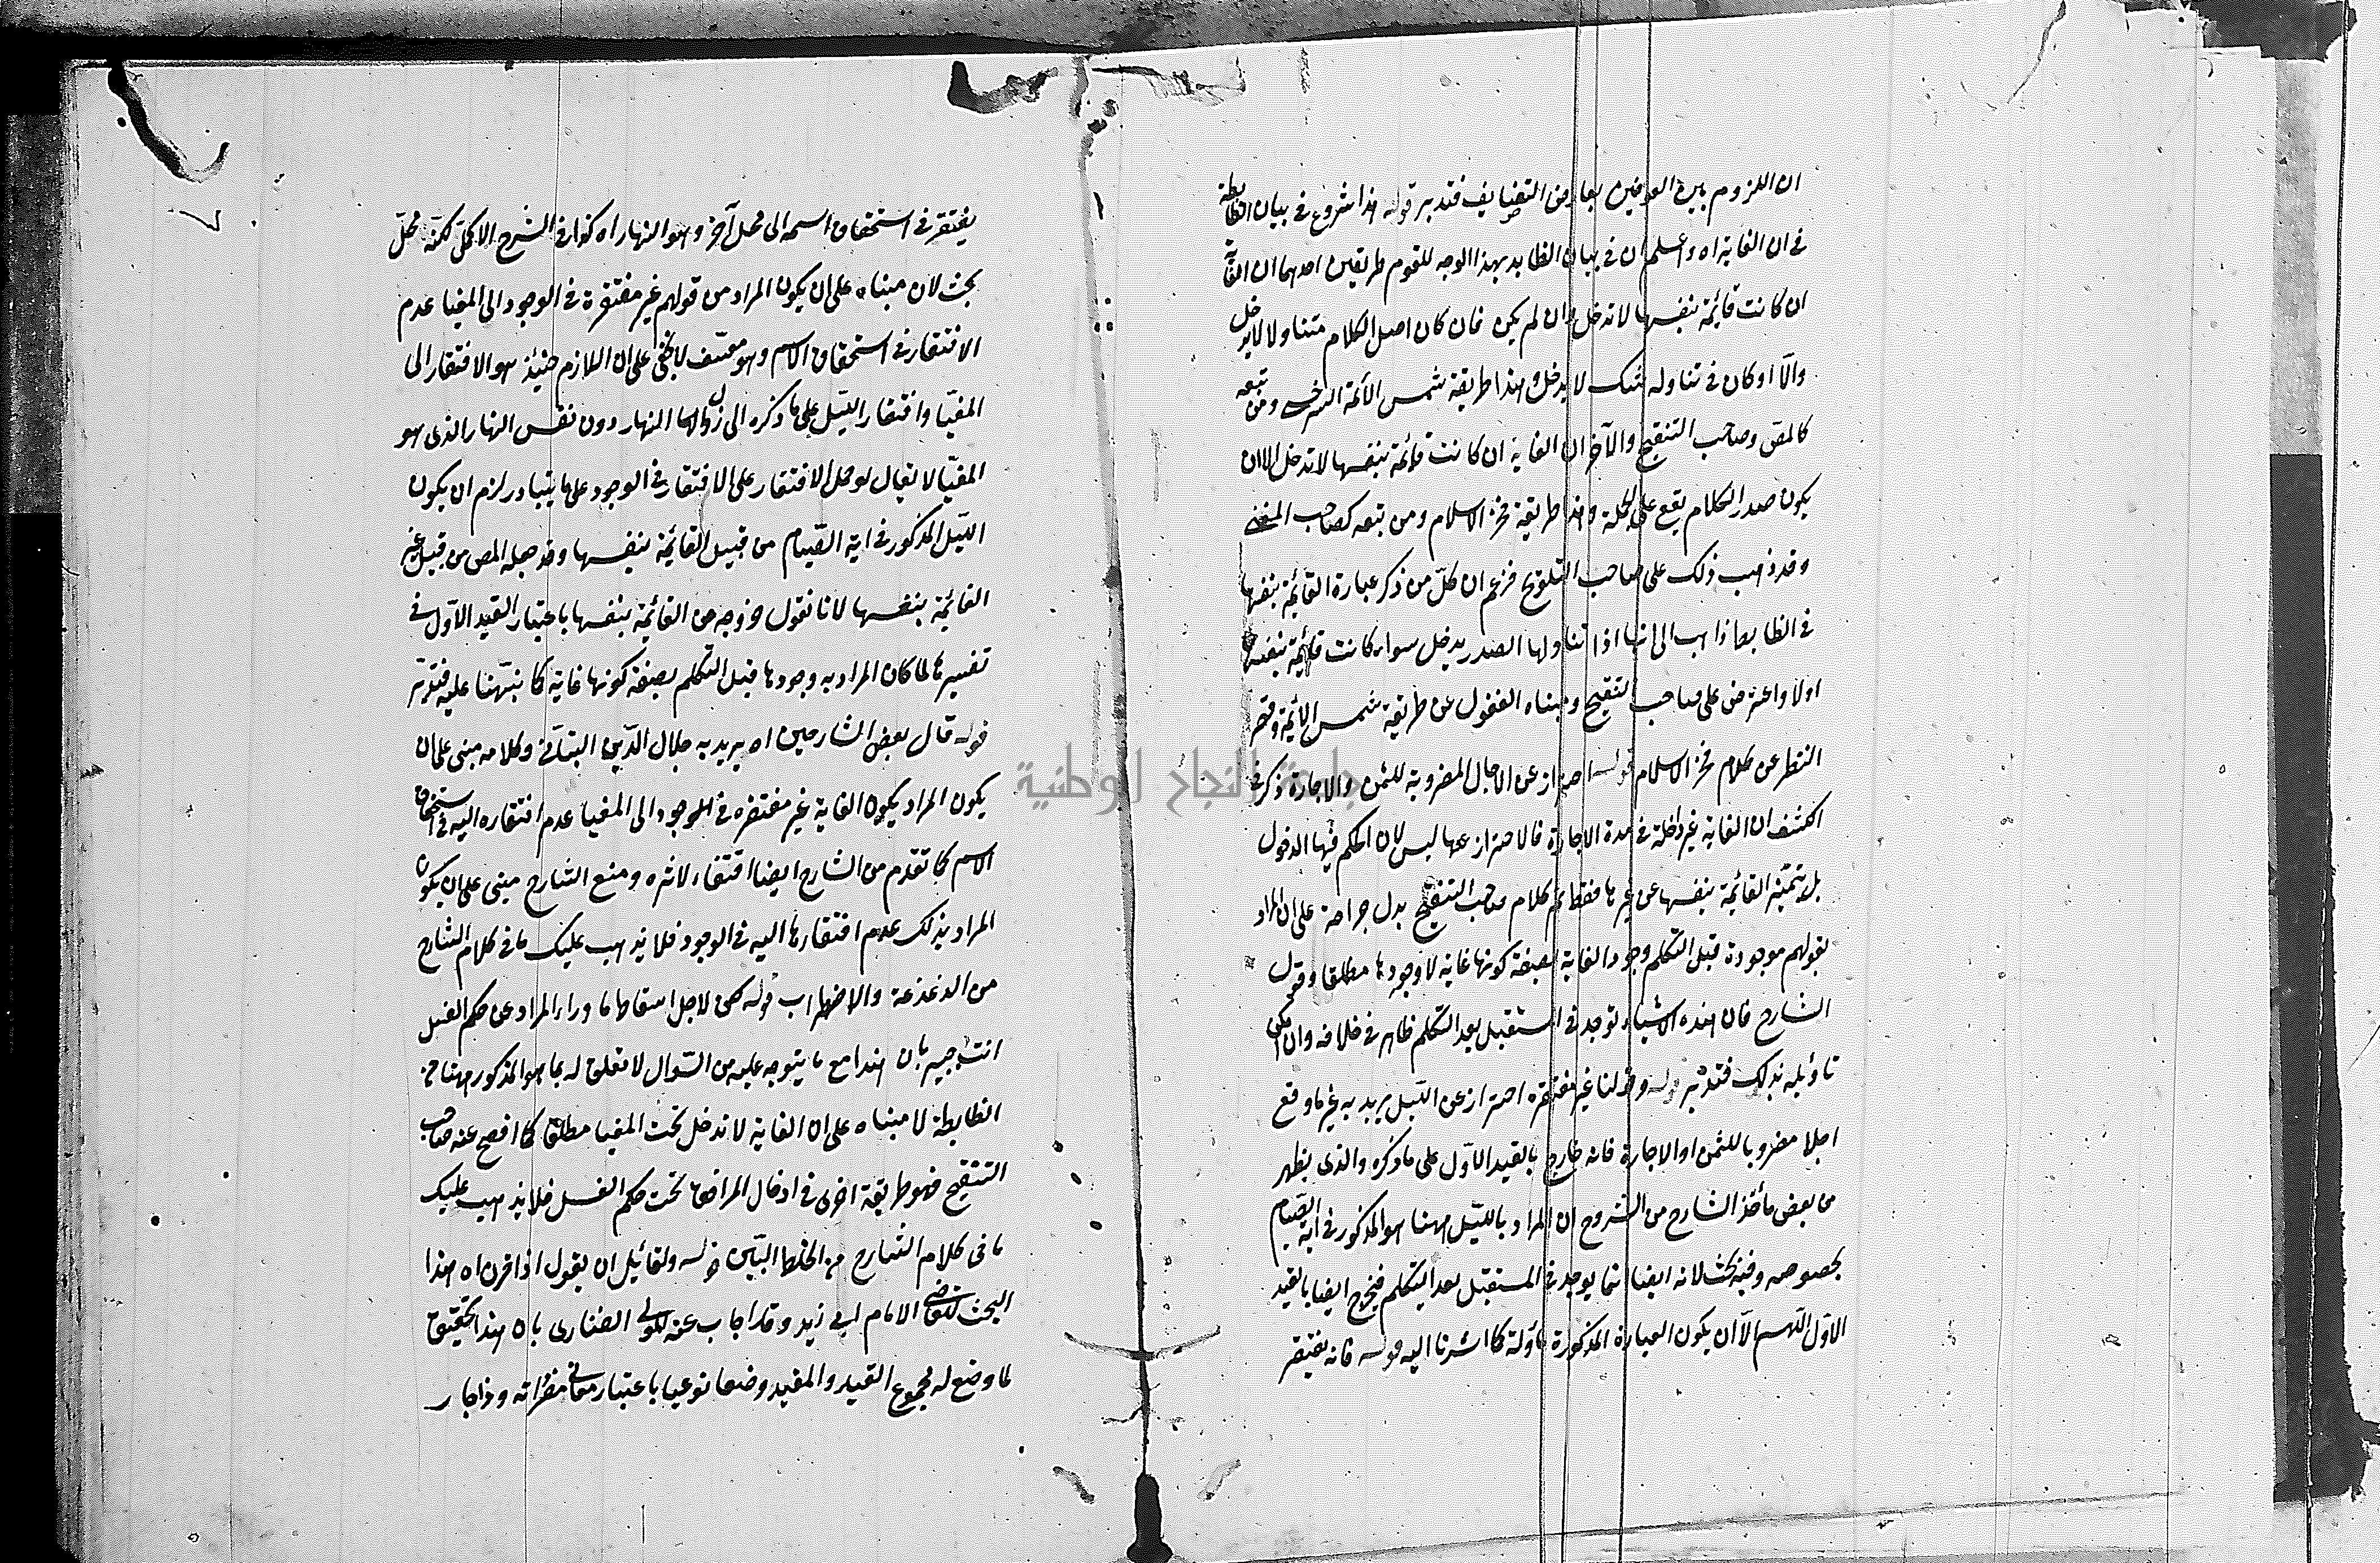 ان اللزوم بين العرفين بعارض التضايف فتدبر قوله هذا شروع في بيان الضابطة
في ان الغاية اه واعلم ان في بيان الضابط بهذا الوجه للقوم طريقين احدهما ان الغاية
ان كانت قائمة بنفسها لا تدخل وان لم يكن فان كان اصل الكلام متناولا لا يدخل
والا او كان في تناوله شك لا يدخل وهذا طريقة شمس الائمة السرخسي ومن تبعه
كالمص وصاحب التنقيح والآخر ان الغاية ان كانت قائمة بنفسها لا تدخل الا ان
يكون صدر الكلام يقع على الجملة وهذا طريقة فخر الاسلام ومن تبعه كصاحب المغني
وقد ذهب ذلك على صاحب التلويح فزعم ان كل من ذكر عبارة القائمة بنفسها
في الضابط ذاهب الى انها اذا تناولها الصدر يدخل سواء كانت قائمة بنفسها
اولا واعترض على صاحب التنقيح ومبناه الغفول عن طريقة شمس الائمة وقصر
النظر عن كلام فخر الاسلام قوله احتراز عن الاجال المضروبة للثمن والاجارة ذكر في
الكشف ان الغاية غير داخلة في مدة الاجارة فالاحتراز عنها ليس لان الحكم فيها الدخول
بل يتميز القائمة بنفسها عن غيرها فقط ثم كلام صاحب التنقيح يدل صراحة على ان المراد
بقولهم موجودة قبل التكلم وجود الغاية بصفة كونها غاية لا وجودها مطلقا وقول
الشارح فان هذه الاشياء توجد في المستقبل بعد التكلم ظاهر في خلافه وان امكن
تأويله بذلك فتدبر قوله وقولنا غير مفتقرة احتراز عن الليل يريد به غير ما وقع
اجلا مضروبا للثمن او الاجارة فانه خارج بالقيد الاول على ما ذكره والذي يظهر
من بعض مأخذ الشارح من الشروح ان المراد بالليل ههنا هو المذكور في اية الصيام
بخصوصه وفيه بحث لانه ايضا انما يوجد في المستقبل بعد التكلم فيخرج ايضا بالقيد
الاول اللهم الا ان يكون العبارة المذكورة مأولة كما اشرنا اليه قوله فانه يفتقر
يفتقر في استحقاق اسمه الى محل آخر وهو النهار اه كذا في الشرح الاكمل لكنه محل
بحث لان مبناه على ان يكون المراد من قولهم غير مفتقرة في الوجود الى المغيا عدم
الافتقار في استحقاق الاسم وهو تعسف لا يخفى على ان اللازم حينئذ هو الافتقار الى
المغيا وافتقار الليل على ما ذكره الى زوال النهار دون نفس النهار الذي هو
المغيا لا يقال لو حمل الافتقار على الافتقار في الوجود على ما يتبادر لزم ان يكون
الليل المذكور في اية الصيام من قبيل القائمة بنفسها وقد جعله المص من قبيل غير
القائمة بنفسها لانا نقول خروجه من القائمة بنفسها باعتبار القيد الاول في
تفسيرها لما كان المراد به وجودها قبل التكلم بصفة كونها غاية كما نبهنا عليه فتدبر
قوله قال بعض الشارحين اه يريد به جلال الدين التباني وكلامه مبني على ان
يكون المراد بكون الغاية غير مفتقرة في الوجود الى المغيا عدم افتقاره اليه في استحقاق
الاسم كما تقدم من الشارح ايضا اقتفاء لاثره ومنع الشارح مبنى على ان يكون
المراد بذلك عدم افتقارها اليه في الوجود فلا يذهب عليك ما في كلام الشارح
من الدغدغة والاضطراب قوله لكن لاجل اسقاط ما وراء المراد عن حكم الغسل
انت خبير بان هذا مع ما يتوجه عليه من السؤال لا تعلق له بما هو المذكور ههنا من
الضابطة لا مبناه على ان الغاية لا تدخل تحت المغيا مطلقا كما افصح عنه صاحب
التنقيح فهو طريقة اخرى في ادخال المرافق تحت حكم الغسل فلا يذهب عليك
ما في كلام الشارح من الخلط البين قوله ولقائل ان يقول اذا قرن اه هذا
البحث للقاضي الامام ابي زيد وقد اجاب عنه المولى الفناري بان هذا تحقيق
لما وضع له مجموع القيد والمقيد وضعا نوعيا باعتبار معاني مفرداته
جامعة النجاح الوطنية